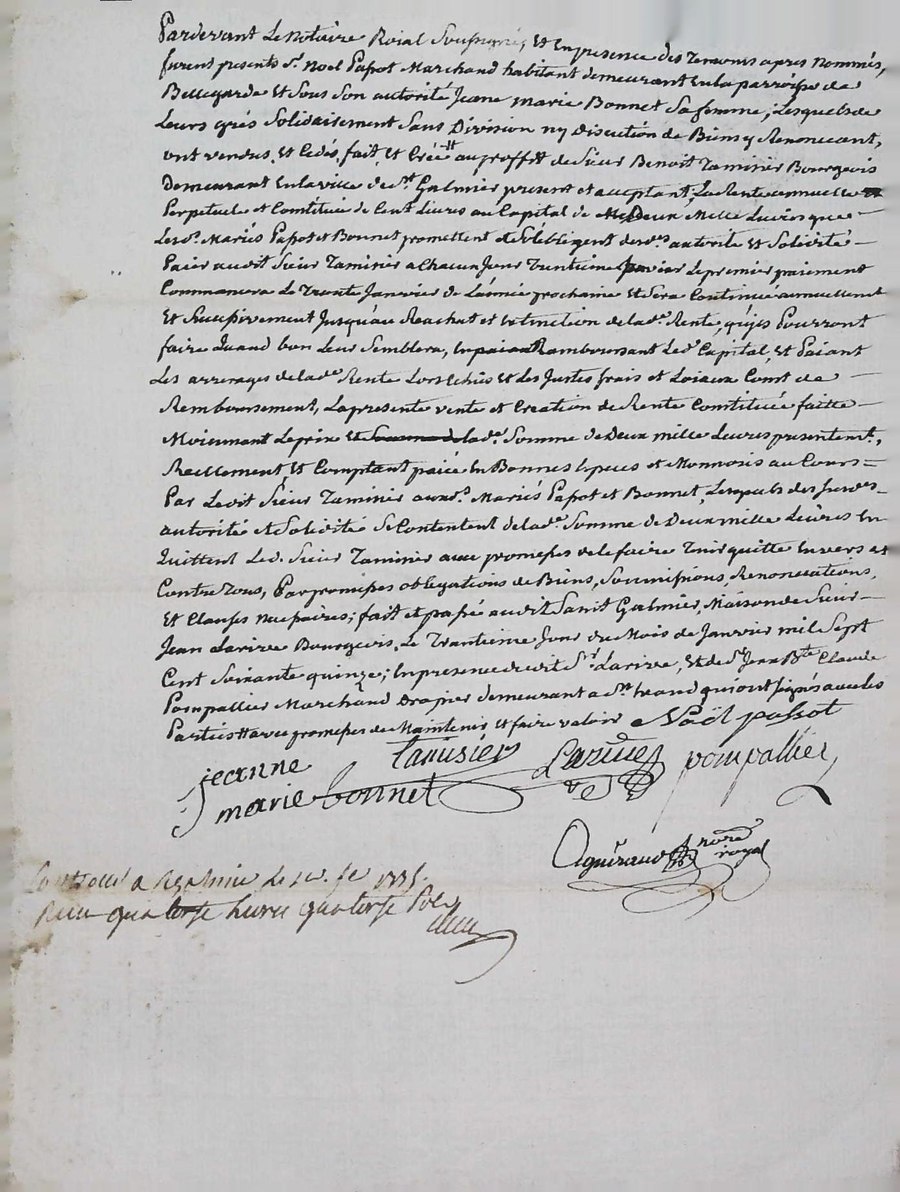 Pardevant Le Notaire Roial Soussigné, Et En presence des Temoins apres nommés,
furent presents Sr. Noel Passot Marchand habitant demeurant en la parroisse de
Bellegarde Et Sous Son autorité Jeane marie Bonnet Sa femme; Lesquels de
Leurs grés Solidairement Sans Division ny discution de Biens y Renoncant,
ont vendus, et Cedés, fait, et Créé au proffit de Sieur Benoit Taminier Bourgeois
Demeurant En la ville de St. Galmier present et acceptant; La Rente annuelle
Perpetuele et Constituée de Cent Livres au Capital de Deux Mille Livres que
Lesd. Mariés Passot et Bonnet promettent et S'obligent desdes. autorité Et Solidité
Paier audit Sieur Taminier a Chacun Jour Trentieme Janvier Le premier paiement
Commancera Le Trente Janvier de L'année prochaine Et Sera Continué annuellement
Et Successivement Jusqu'au Reachat et extinction de lade. Rente, qu'ils Pourront
faire Quand bon Leur Semblera, En Ramboursant Led. Capital, et Paiant
Les arrerages de lade. Rente Lors Echus Et Les Justes frais et Loiaux Cout de
Remboursement, La presente vente et Creation de Rente Constituée faitte
Moiennant Le prix Et lade. Somme de Deux mille Livres presentemt.
Reellement Et Comptant paiée En Bonnes Especes et Monnois au Cours
Par Ledit Sieur Taminier auxd. Mariés Passot et Bonnet, Lesquels des Susdes.
autorité et Solidité Se Contentent de lade. Somme de Deux mille Livres En
Quittent Led. Sieur Taminier avec promesses de le faire Tenir quitte Envers et
Contre Tous, Par promesses obligations de Biens, Soumissions, Renonciations,
Et Clauses necessaires; fait et passé audit Saint Galmier, Maison de Sieur
Jean Larive Bourgeois, Le Trantieme Jour du Mois de Janvier mil Sept
Cent Soixante quinze; En presence dudit Sr. Larive, Et de Sr. Jean Bte. Claude
Pompallier Marchand Drapier demeurant a St. qui ont Signés avec les
Parties avec promesses de Maintenir et faire valoir Noël passot
jeanne Tamisier Larive pompallier
marie bonnet
Aguiraud nore
royal
Controllé a St galmier Le 1775.
Reçu quatorse livres quatorse Sols